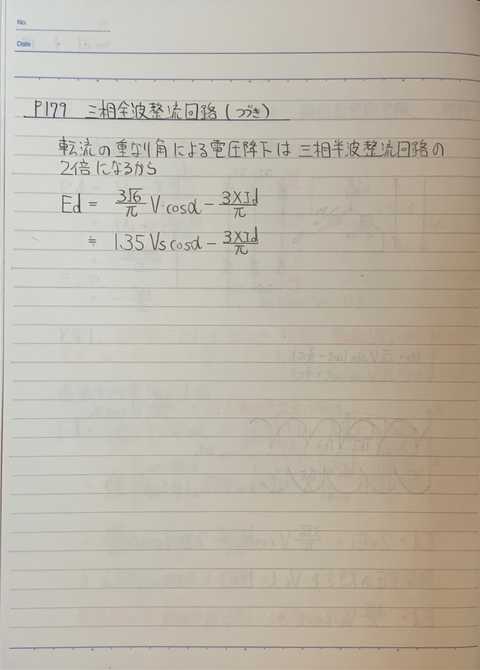 No.
Date
P179 三相全波整流回路(つづき)
転流の重なり角による電圧降下は 三相半波整流回路の
2倍になるから
Ed = 3√6/π V・cosα − 3XId/π
≒ 1.35 Vs cosα − 3XId/π